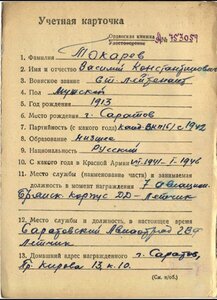 Учетная карточка
Орденская книжка № 753059
Удостоверение
1. Фамилия Токарев
2. Имя и отчество Василий Константинович
3. Воинское звание Ст. лейтенант
4. Пол Мужской
5. Год рождения 1913
6. Место рождения г. Саратов
7. Партийность (с какого года) канд. ВКП(б) с 1942
8. Образование Низшее
9. Национальность Русский
10. С какого года в Красной Армии VII-1941-I-1946
11. Место службы (наименование части) и занимаемая
должность в момент награждения 7 авиацион.
Брянск корпус ДД-летчик
12. Место службы и должность в настоящее время
Саратовский Авиаотряд ГВФ
Летчик
13. Домашний адрес награжденного г. Саратов,
Пр. Кирова 13 к. 10.
(См. н/об.)